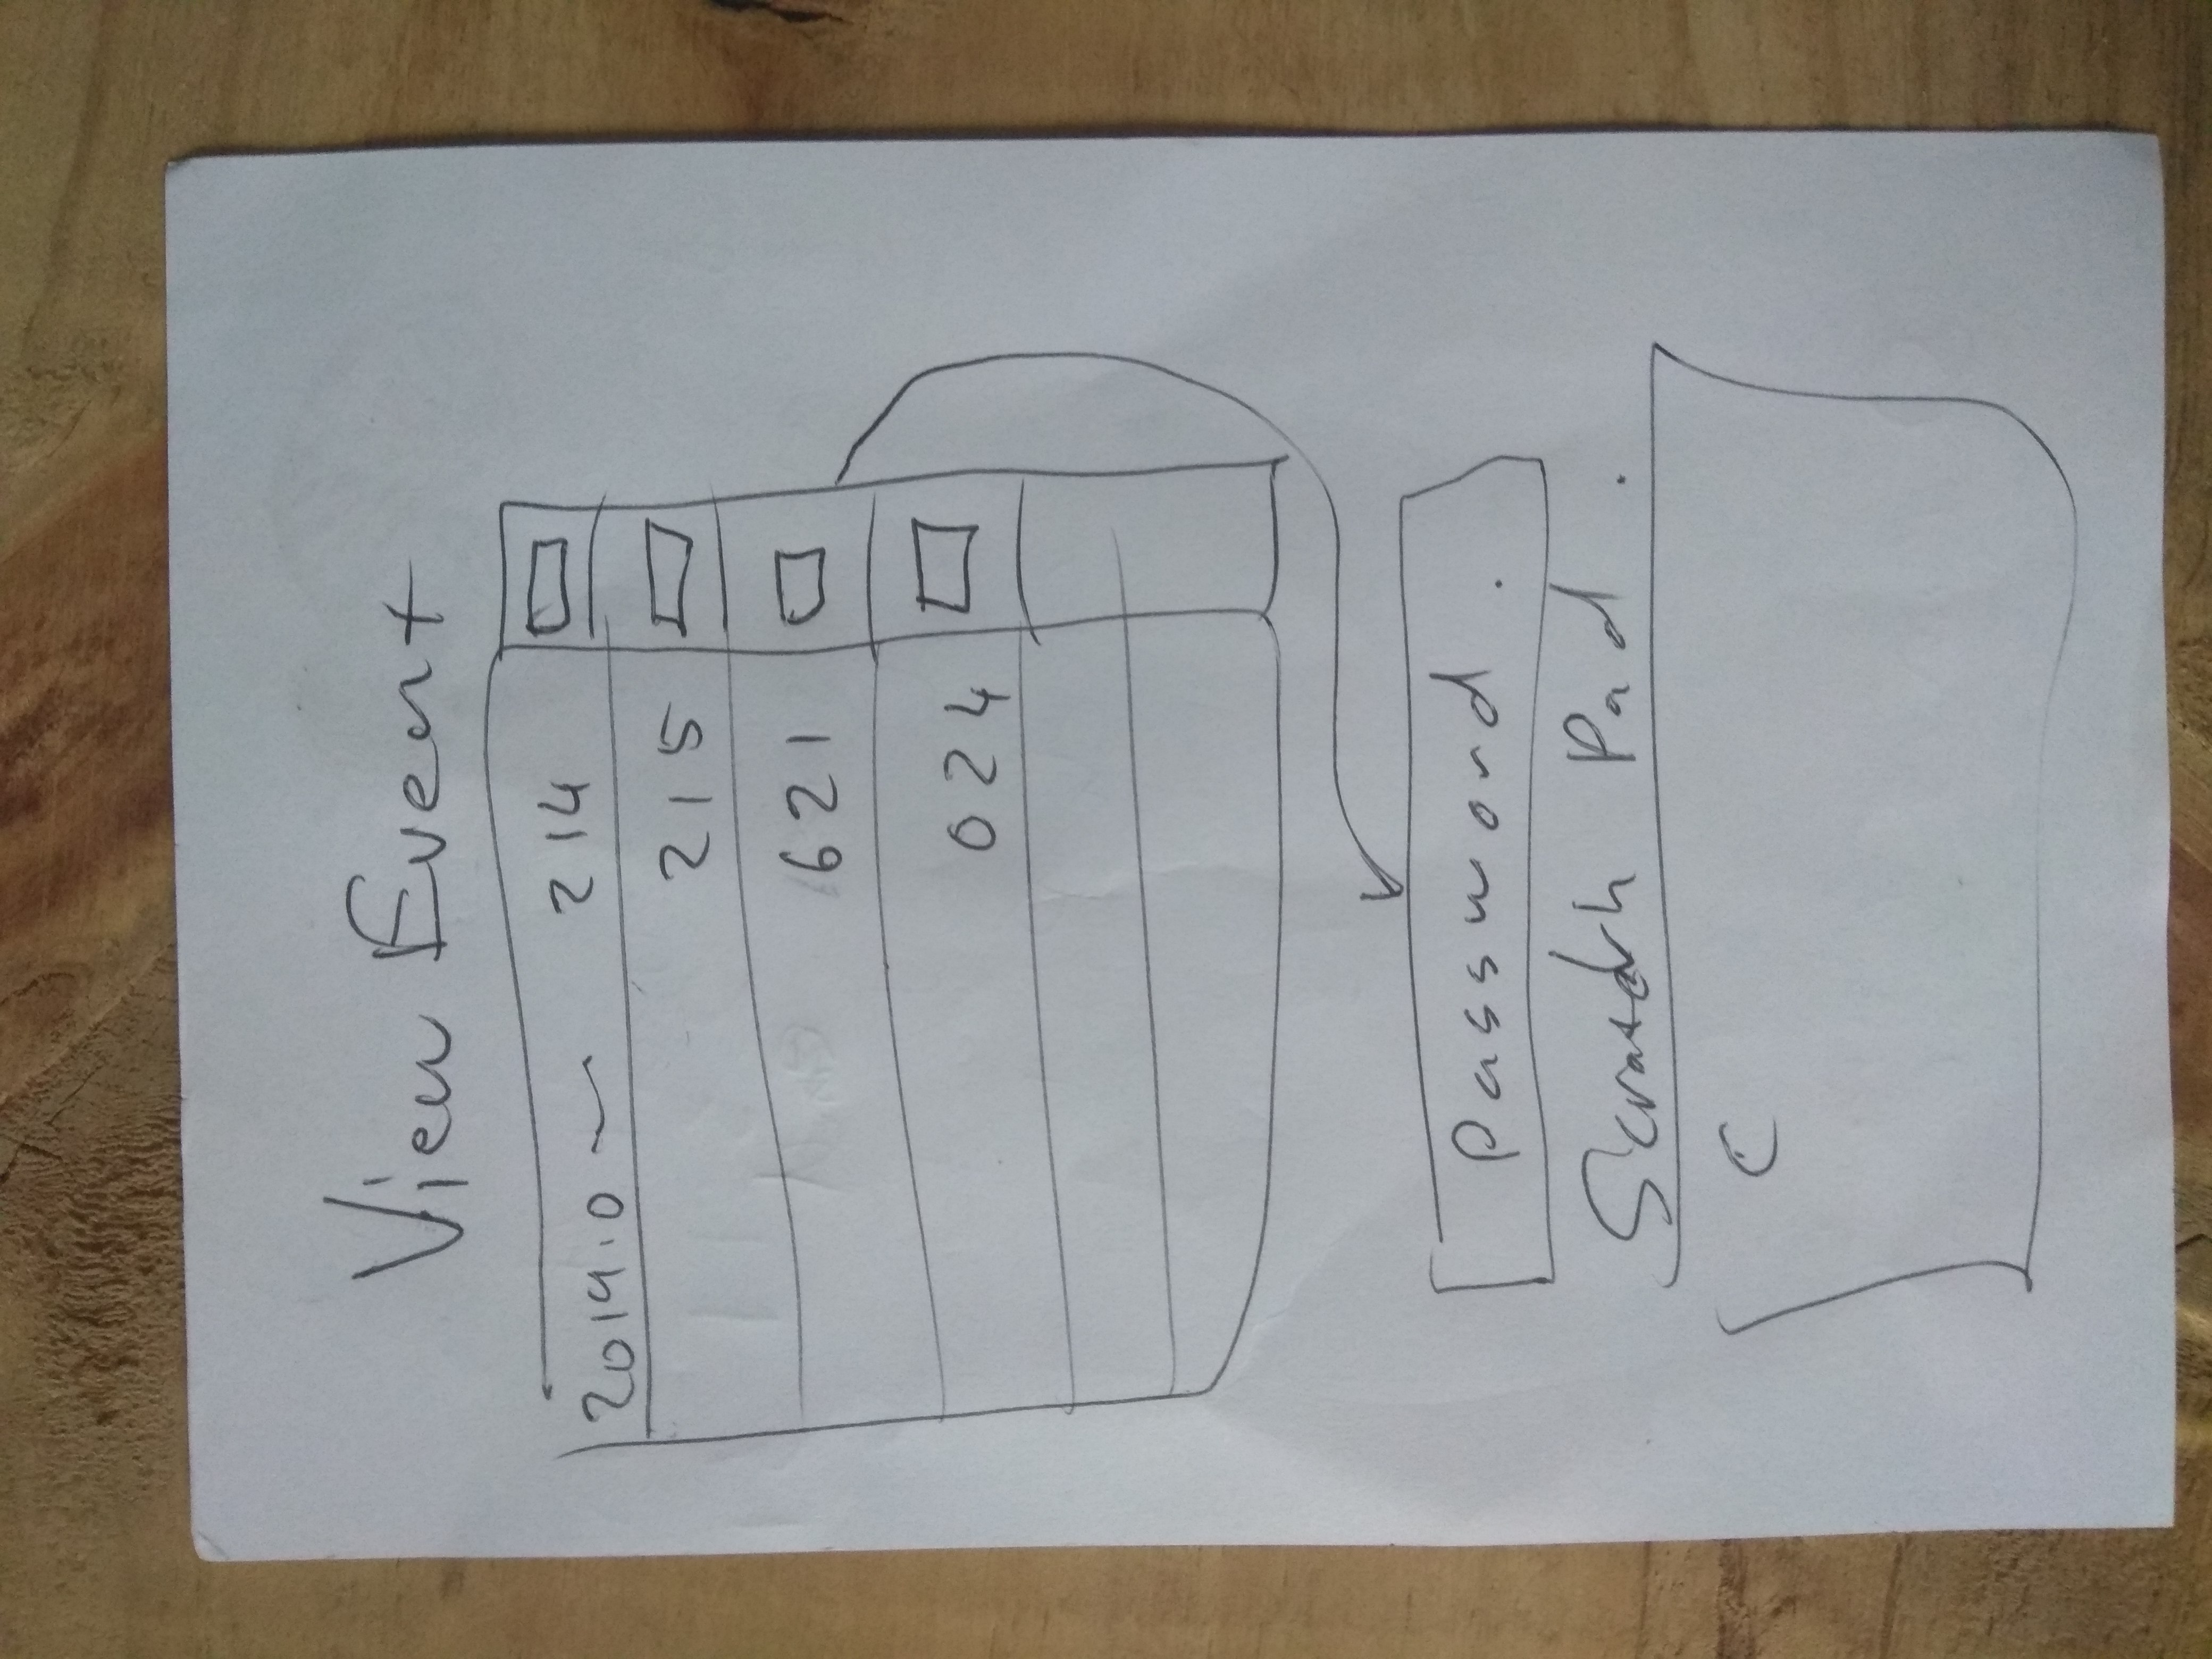 View Event
2019.0 ~ 214
215
621
024
Password.
Scratch Pad.
C